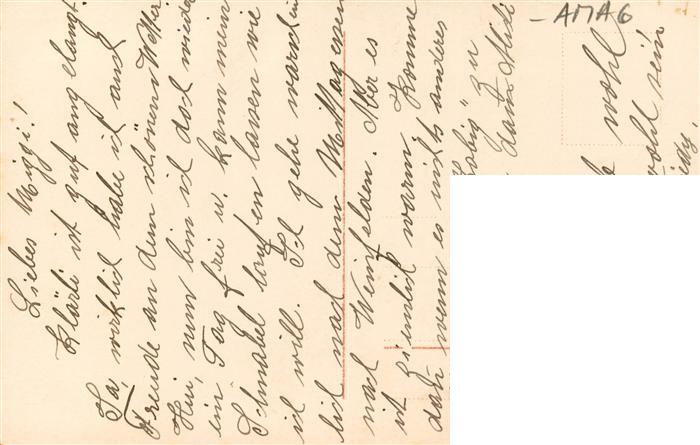 -AMA6
Liebes Miggi!
Klärli ist gut angelangt.
Ja, wirklich habe ich auch
Freude an dem schönen Wetter
Hui, nun bin ich doch wieder
ein Tag frei u. kann mein
Schnabel laufen lassen wie
ich will. Ich gehe warschein
lich nach dem Mittagessen
nach Weinfelden. Aber es
ist ziemlich warm. Komme
dah wenn es nichts anderes
zu
dann
wohl
wohl sein